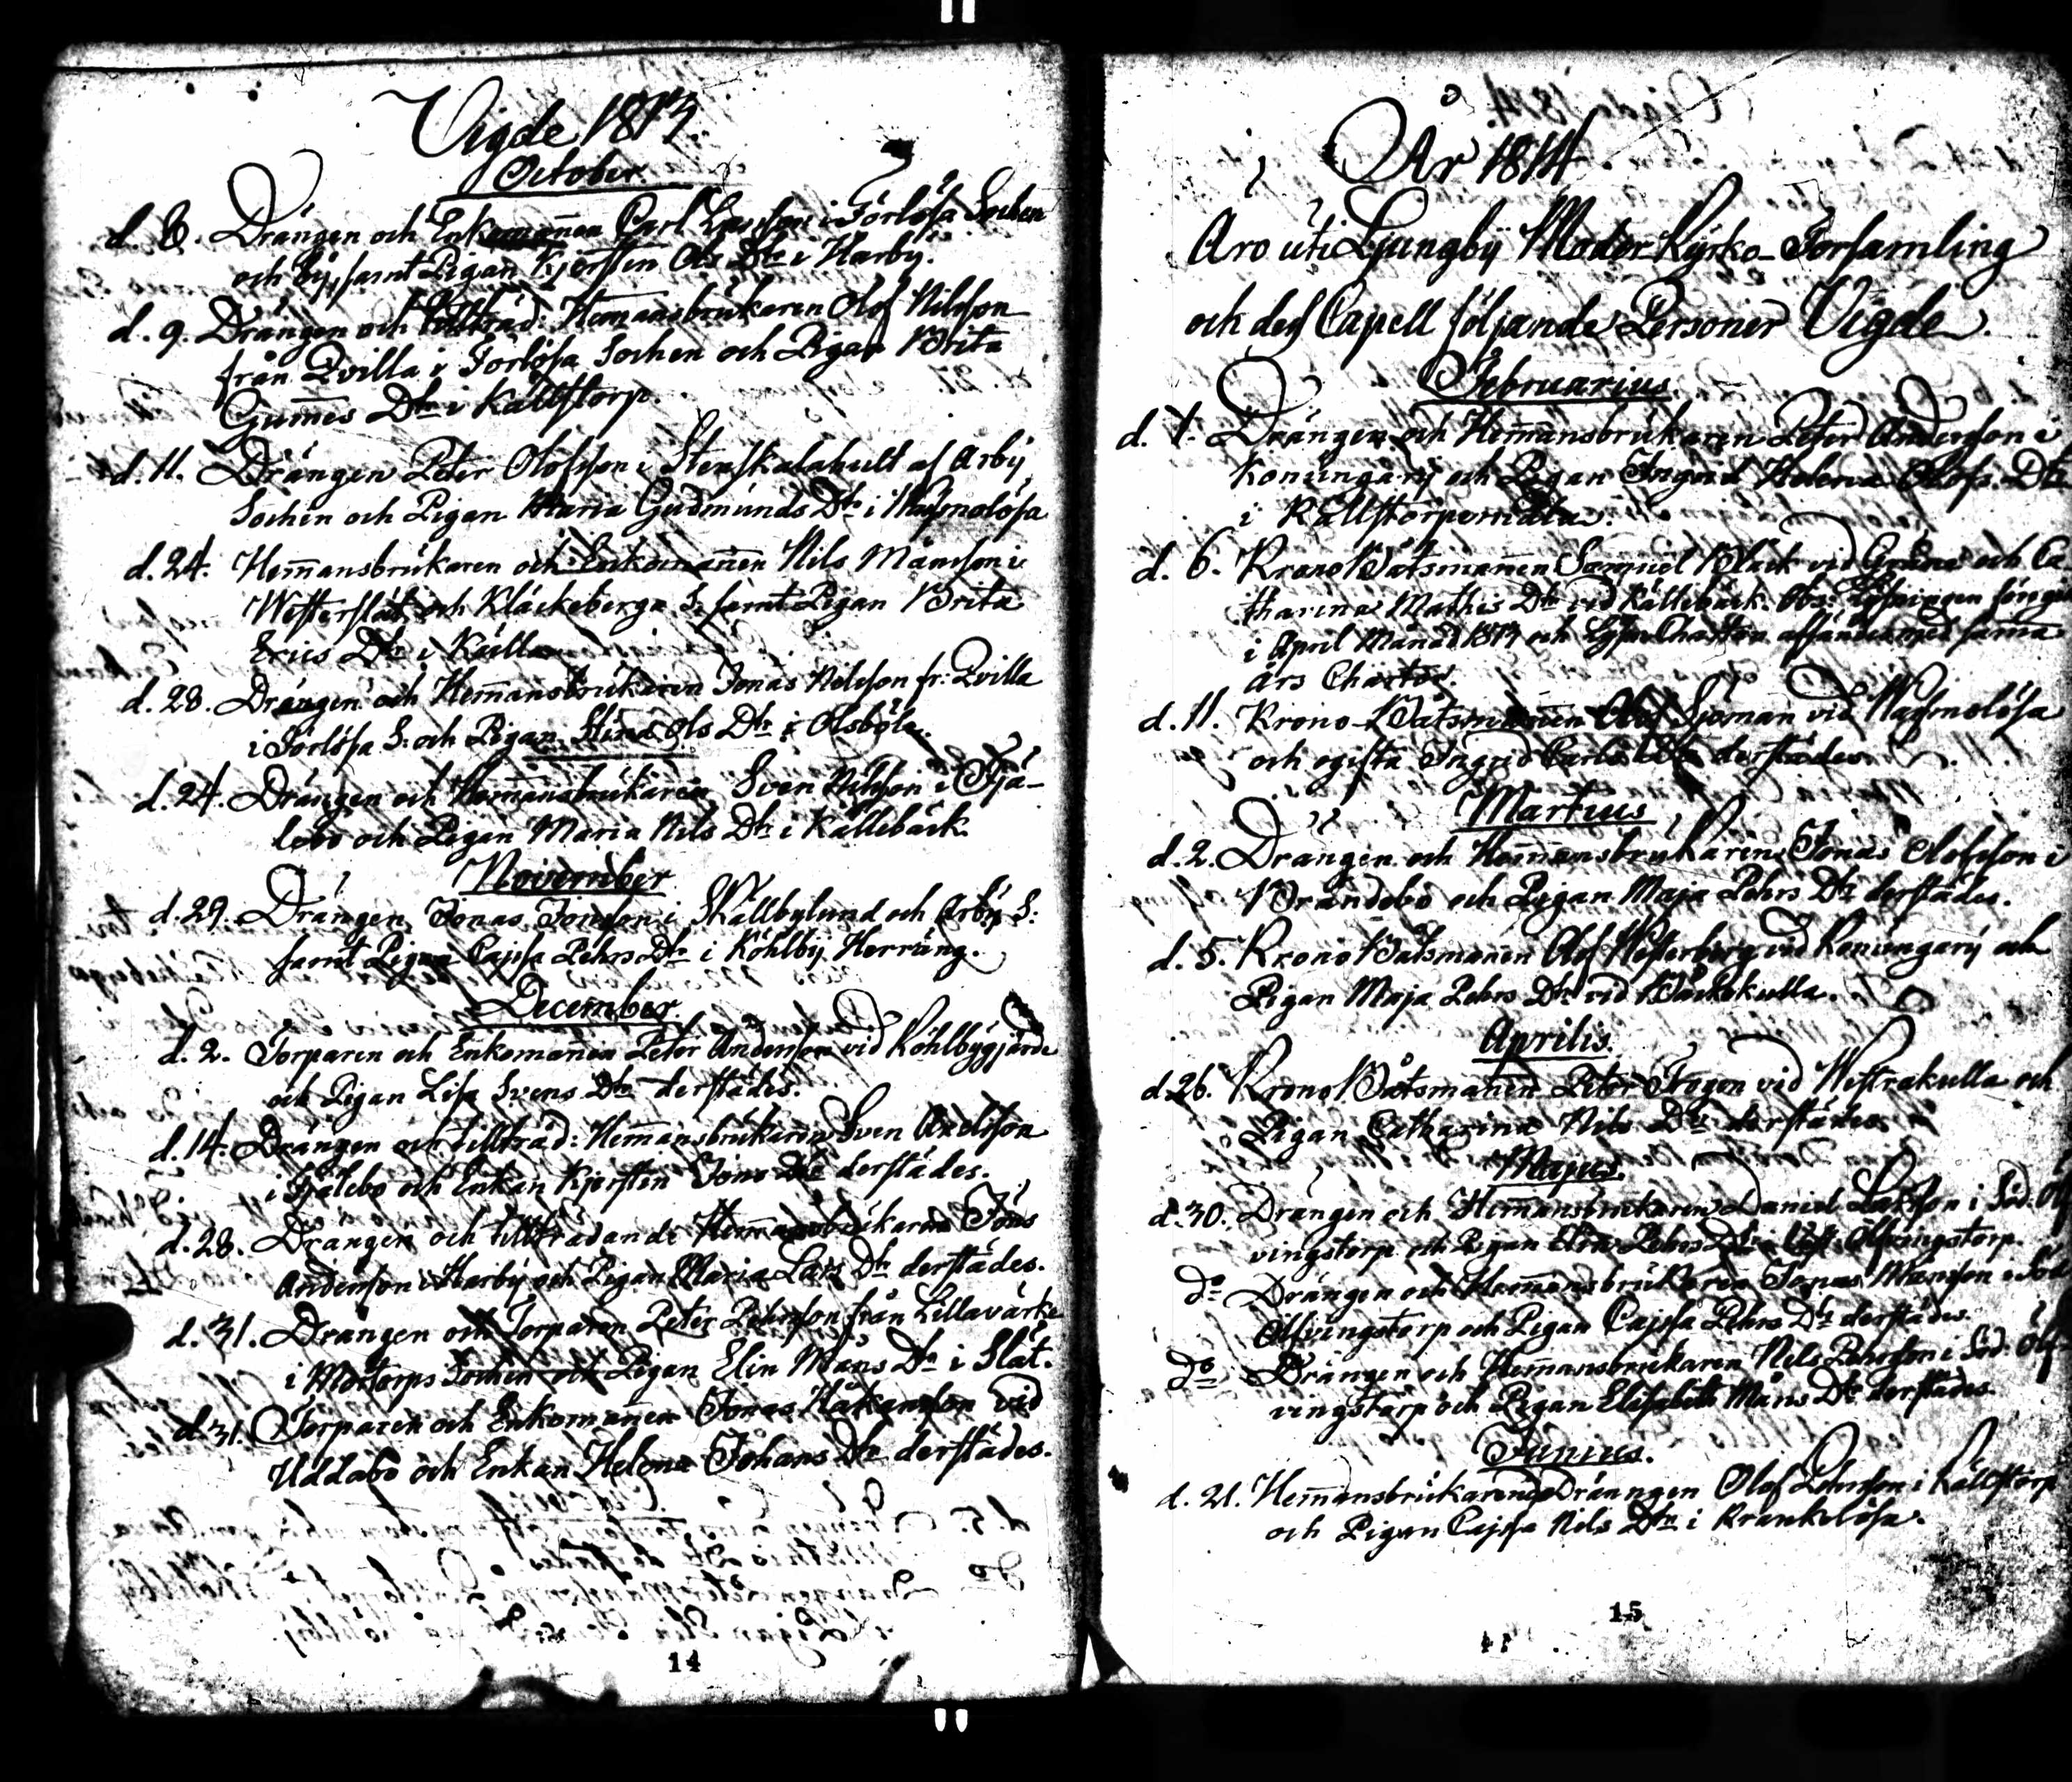 Vigde 1813.
October.
d. 8. Drängen och Enkomannen Carl Larsson i Förlösa Sochen
och by, samt Pigan Kjerstin Ols Dtr i Harby.
d. 9. Drängen och tillträd: Hem̅ansbrukaren Olof Nilsson
från Qvilla i Förlösa Sochen och Pigan Brita
Gum̅es Dtr i Källstorp.
d. 11. Drängen Peter Olofsson i Stenskalahult af Arby
Sochen och Pigan Maria Gudmunds Dtr i
d. 24. Hem̅ansbrukaren och Enkoman̅en Nils Månsson i
Westerslät och Kläckeberga S. samt Pigan Brita
Erics Dtr i Kulla
d. 28. Drängen och Hem̅ansbrukaren Jonas Nilsson fr: Qvilla
i Förlösa S: och Pigan Stina Ols Dtr i Olsböle.
d. 24. Drängen och Hem̅ansbrukaren Sven Nilsson i Tjä-
lebo och Pigan Maria Nils Dtr i Källebäck.
November
d. 29. Drängen Jonas Jonsson i Skällbylund och Arby S:
samt Pigan Cajsa Pehrs Dtr i Köhlby Herräng.
December.
d. 2. Torparen och Enkoman̅en Peter Andersson vid Köhlbygjärde
och Pigan Lisa Svens Dtr derstädes.
d. 14. Drängen och tillträd: Hem̅ansbrukaren Sven Axelsson
i Tjälebo och Enkan Kjerstin Jons Dtr derstädes.
d. 28. Drängen och tillträdande Hem̅ansbrukaren Jöns
Andersson i Harby och Pigan Maria Lars Dtr derstädes.
d. 31. Drängen och Torparen Peter Pehrsson från Lillavärke
i Mortorps Sochen och Pigan Elin Måns Dtr i Slät.
d. 31. Torparen och Enkoman̅en Jonas Håkansson vid
Uddabo och Enkan Helena Johans Dtr derstädes.
14
År 1814
Äro uti Ljungby Moder Kyrko-Församling
och dess Capell följande Personer Vigde.
Februarius.
d. 1. Drängen och Hem̅ansbrukaren Peter Andersson i
Konungary och Pigan Ingrid Helena Olofs Dtr
i
d. 6. Krono Båtsman̅en Samuel Black vid och Ca
tharina Mathis Dtr vid Källebäck. Obs: Lysningen
i April Månad 1813 och med samma
års Chartor.
d. 11. Krono-Båtsman̅en Olof Sjöman vid
och ogifta Ingrid Carls Dtr derstädes.
Martius
d. 2. Drängen och Hem̅ansbrukaren Jonas Olofsson i
Brändebo och Pigan Maja Pehrs Dtr derstädes.
d. 5. Krono Båtsman̅en Olof Westerberg vid Konungary och
Pigan Maja Pehrs Dtr vid Bäckekulla.
Aprilis.
d. 26. Krono Båtsman̅en Peter Trogen vid Westrakulla och
Pigan Catharina Nils Dtr derstädes.
Majus.
d. 30. Drängen och Hem̅ansbrukaren Daniel Larsson i Söd. Ölf
vingstorp och Pigan Elin Pehrs Dtr i Ölfvingstorp.
do Drängen och Hem̅ansbrukaren Jonas Månsson i Söd
Ölfvingstorp och Pigan Cajsa Pehrs Dtr derstädes.
do Drängen och Hem̅ansbrukaren Nils Pehrsson i Söd. Ölf
vingstorp och Pigan Elisabeth Måns Dtr derstädes.
Junius.
d. 21. Hem̅ansbrukaren Drängen Olof Pehrsson i Källstorp
och Pigan Cajsa Nils Dtr i Krankelösa.
15